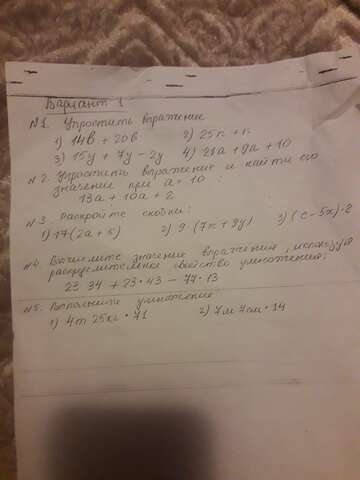 Вариант 1
№1. Упростить выражение
1) 14в + 20в 2) 25n + n
3) 15y + 7y - 2y 4) 21a + 9a + 10
№2. Упростить выражение и найти его
значение при a = 10 :
13a + 10a + 2
№3. Раскройте скобки:
1) 17(2a + 5) 2) 9 (7x + 9y) 3) (c - 5x)·2
№4. Вычислите значение выражения, используя
распределительное свойство умножения:
23·34 + 23·43 - 77·13
№5. Выполните умножение
1) 4т 25кг · 71 2) 7м 7см · 14